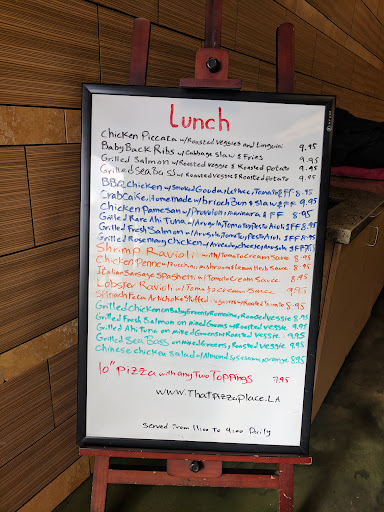 Lunch
Chicken Piccata w/Roasted veggies and Linguini 9.95
Baby Back Ribs w/Cabbage slaw & Fries 9.95
Grilled Salmon w/Roasted veggie & Roasted Potato 9.95
Grilled Sea Bass w/Roasted veggie & Roasted Potato 9.95
BBQ Chicken w/Smoked Gouda, Lettuce, Tomato & FF 8.95
Crab Cake, Homemade w/brioch Bun & slaw & FF 9.95
Chicken Parmesan w/Provolone marinara & FF 8.95
Grilled Rare Ahi Tuna w/Arugula, Tomato, Pesto Aioli & FF 8.95
Grilled Fresh Salmon on w/Arugula, Tomato, Pesto Aioli & FF 8.95
Grilled Rosemary Chicken w/Avocado, cheese, Aioli & FF 8.95
Shrimp Ravioli w/Tomato Cream Sauce 8.95
Chicken Penne w/Zucchini, mushroom & Lemon Herb Sauce 8.95
Italian Sausage Spaghetti w/Tomato Cream Sauce 8.95
Lobster Ravioli w/Tomato cream Sauce 9.95
Spinach Feta Artichoke Stuffed 8.95
Grilled chicken on Baby Greens, Romaine, Roasted veggie 8.95
Grilled Fresh Salmon on mixed Greens w/Roasted veggie 9.95
Grilled Ahi Tuna on mixed Greens w/Roasted veggie 9.95
Grilled Sea Bass on mixed Greens, Roasted veggie 9.95
Chinese chicken Salad w/Almond, sesame, orange 8.95
10" Pizza with any Two Toppings 7.95
www.ThatPizzaplace.LA
Served From 11:00 To 4:00 Daily